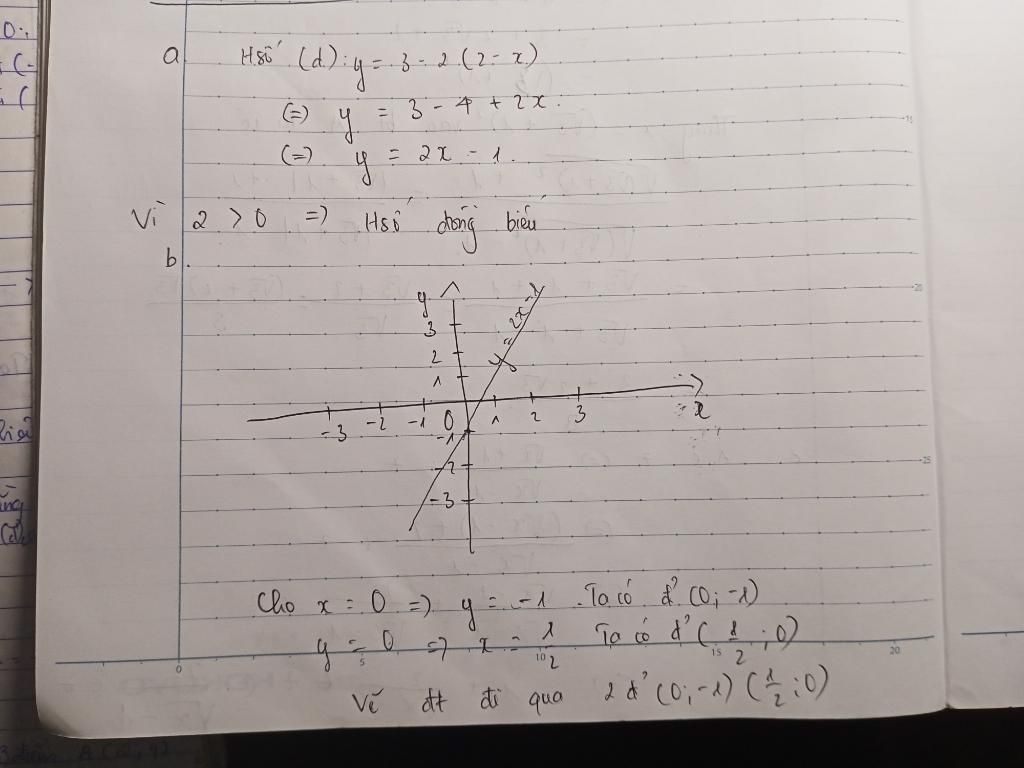 a Hsố (d): y = 3 - 2 (2 - x)
(=) y = 3 - 4 + 2x.
(=) y = 2x - 1.
Vì 2 > 0 => Hsố đồng biến
b.
y
3
2
1
y = 2x - 1
-3 -2 -1 0 1 2 3 x
-1
-2
-3
Cho x = 0 => y = -1. Ta có đ' (0; -1)
y = 0 => x = 1/2 Ta có đ' (1/2; 0)
Vẽ đt đi qua 2 đ' (0; -1) (1/2; 0)
0 5 10 15 20
15
20
25